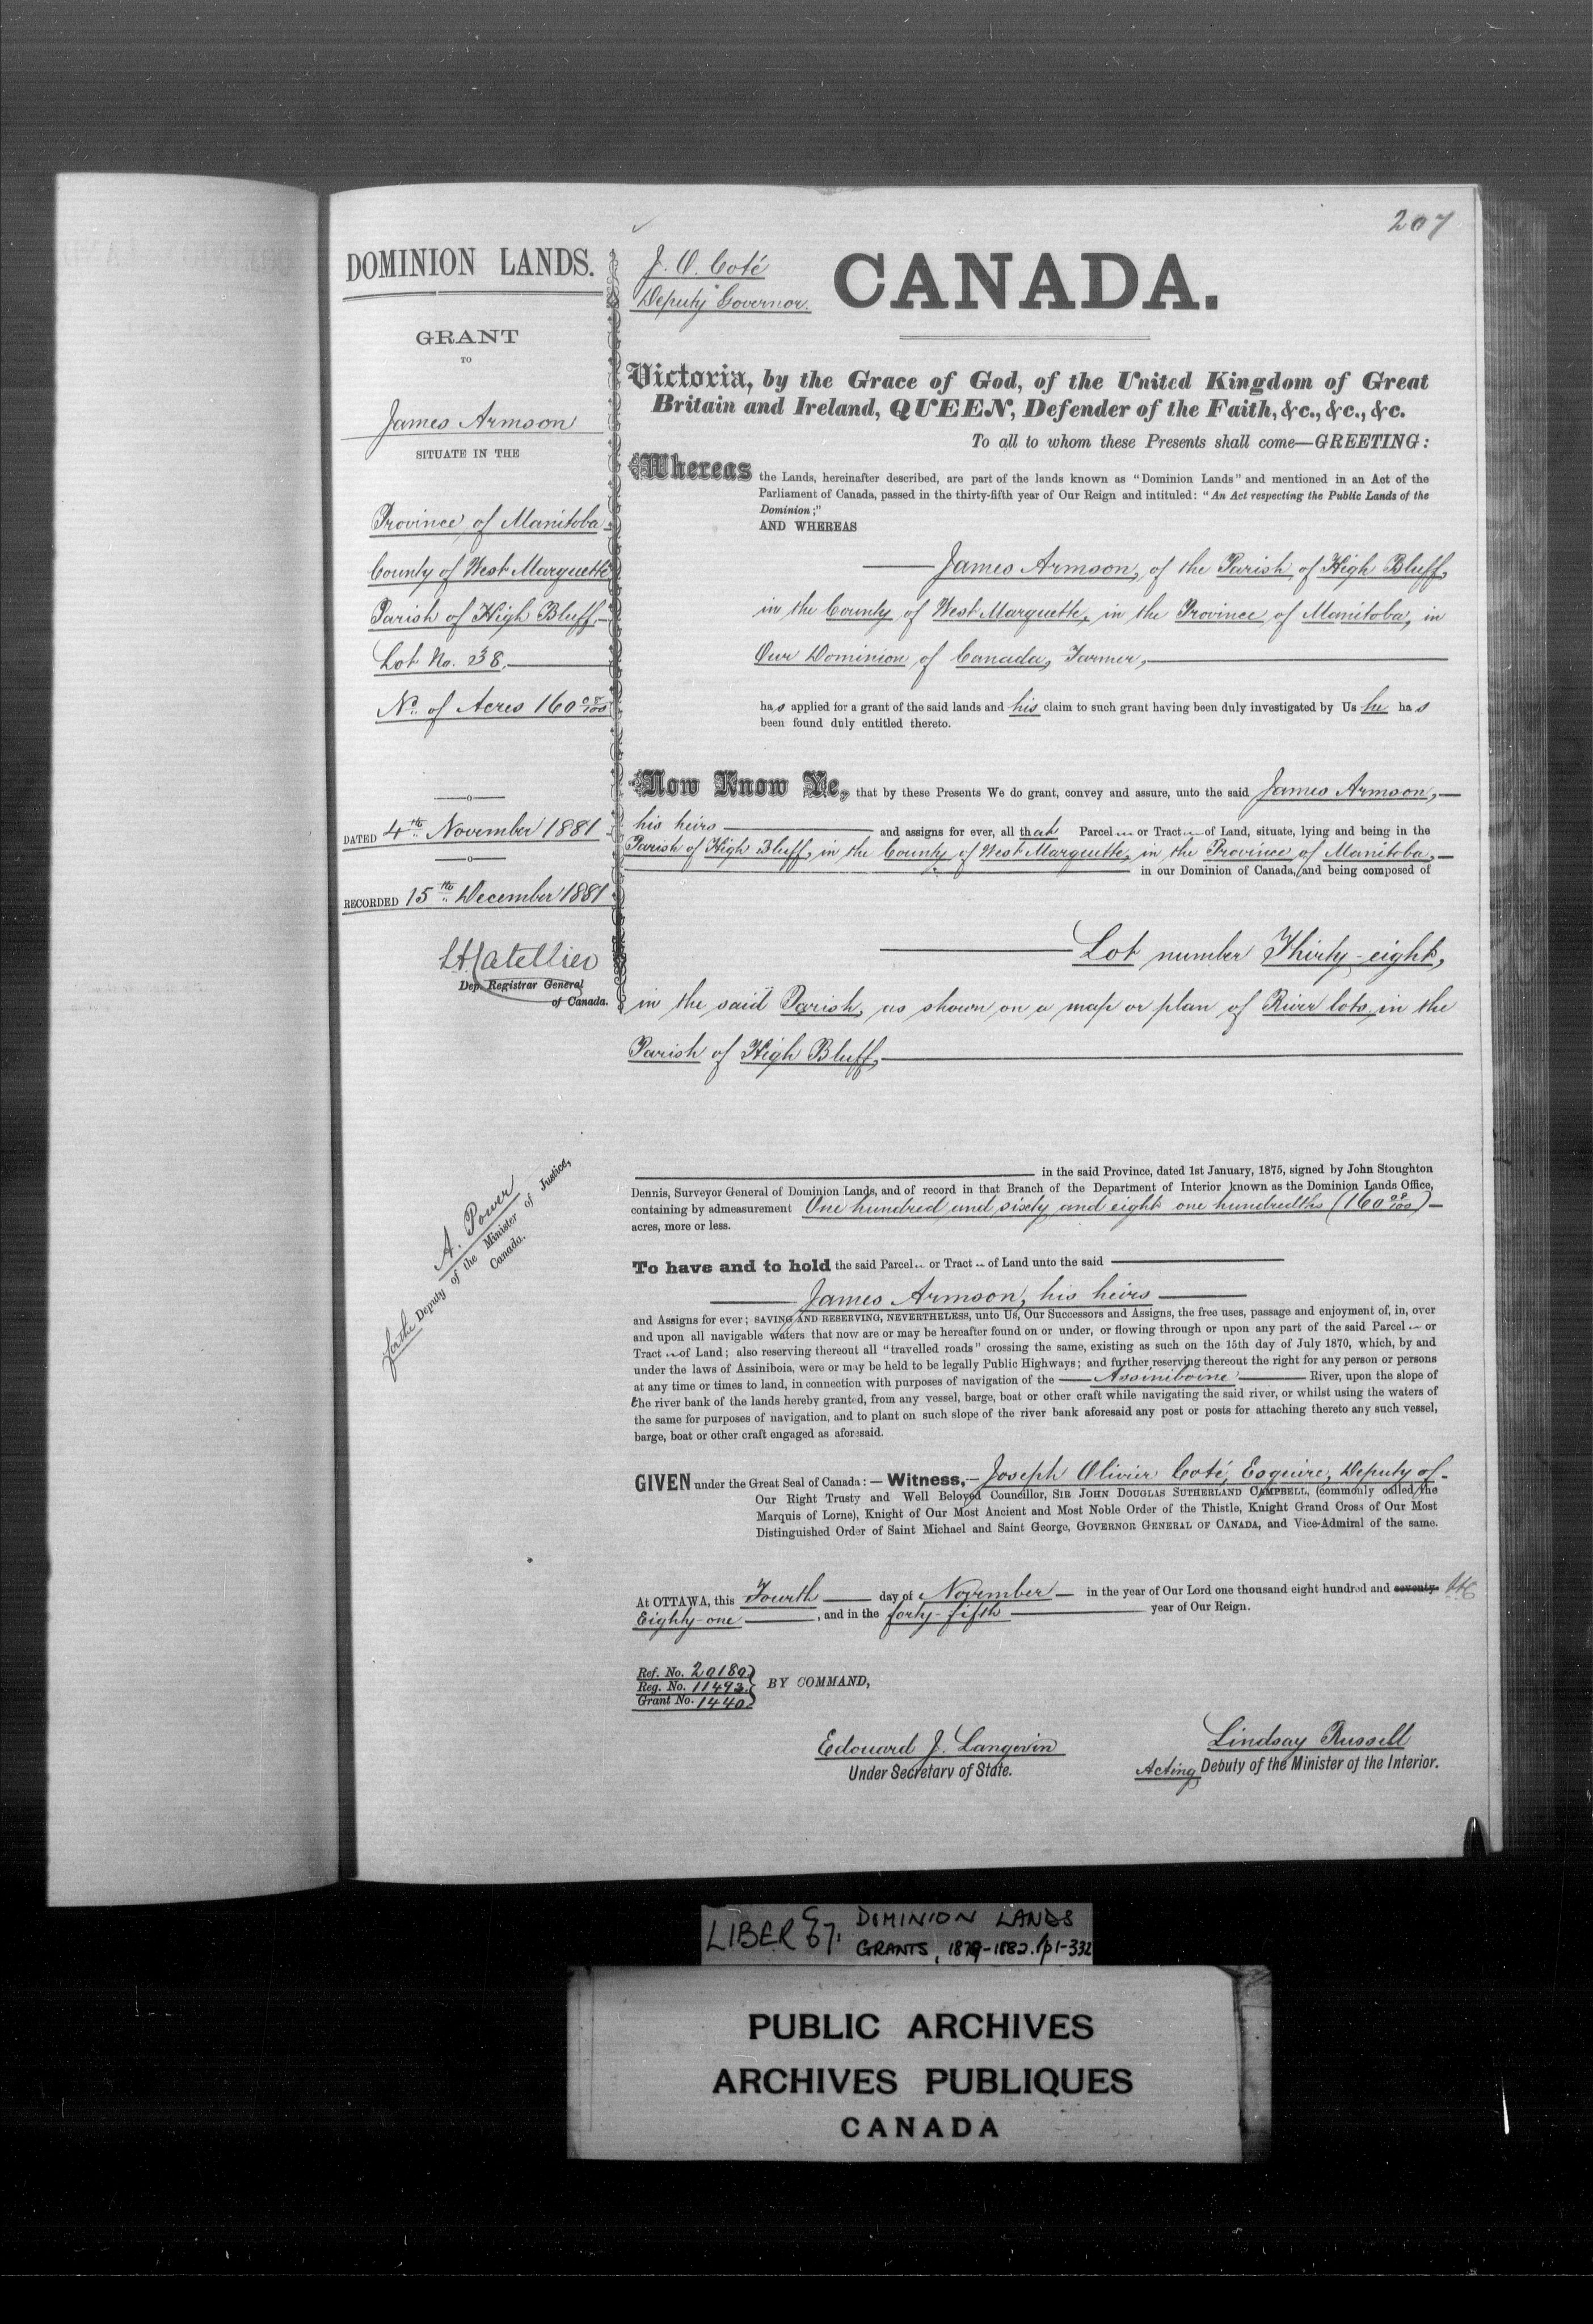 207
DOMINION LANDS.
GRANT
TO
James Armson
SITUATE IN THE
Province of Manitoba
County of West Marquette
Parish of High Bluff,
Lot No. 38.
No. of Acres 160 08/100
DATED 4th November 1881
RECORDED 15th December 1881
Dep. Registrar General
of Canada.
A. Power
for the Deputy of the Minister of Justice,
Canada.
J. O. Coté
Deputy Governor.
CANADA.
Victoria, by the Grace of God, of the United Kingdom of Great
Britain and Ireland, QUEEN, Defender of the Faith, &c., &c., &c.
To all to whom these Presents shall come—GREETING:
Whereas the Lands, hereinafter described, are part of the lands known as "Dominion Lands" and mentioned in an Act of the
Parliament of Canada, passed in the thirty-fifth year of Our Reign and intituled: "An Act respecting the Public Lands of the
Dominion;"
AND WHEREAS
James Armson, of the Parish of High Bluff,
in the County of West Marquette, in the Province of Manitoba, in
Our Dominion of Canada, Farmer,
has applied for a grant of the said lands and his claim to such grant having been duly investigated by Us he has
been found duly entitled thereto.
Now Know Ye, that by these Presents We do grant, convey and assure, unto the said James Armson,
his heirs and assigns for ever, all that Parcel or Tract of Land, situate, lying and being in the
Parish of High Bluff, in the County of West Marquette, in the Province of Manitoba,
in our Dominion of Canada, and being composed of
Lot number Thirty-eight,
in the said Parish, as shown on a map or plan of River lots in the
Parish of High Bluff,
in the said Province, dated 1st January, 1875, signed by John Stoughton
Dennis, Surveyor General of Dominion Lands, and of record in that Branch of the Department of Interior known as the Dominion Lands Office,
containing by admeasurement One hundred and sixty and eight one hundredths (160 08/100)
acres, more or less.
To have and to hold the said Parcel or Tract of Land unto the said
James Armson, his heirs
and Assigns for ever; SAVING AND RESERVING, NEVERTHELESS, unto Us, Our Successors and Assigns, the free uses, passage and enjoyment of, in, over
and upon all navigable waters that now are or may be hereafter found on or under, or flowing through or upon any part of the said Parcel or
Tract of Land; also reserving thereout all "travelled roads" crossing the same, existing as such on the 15th day of July 1870, which, by and
under the laws of Assiniboia, were or may be held to be legally Public Highways; and further reserving thereout the right for any person or persons
at any time or times to land, in connection with purposes of navigation of the Assiniboine River, upon the slope of
the river bank of the lands hereby granted, from any vessel, barge, boat or other craft while navigating the said river, or whilst using the waters of
the same for purposes of navigation, and to plant on such slope of the river bank aforesaid any post or posts for attaching thereto any such vessel,
barge, boat or other craft engaged as aforesaid.
GIVEN under the Great Seal of Canada:— Witness,— Joseph Olivier Coté, Esquire, Deputy of
Our Right Trusty and Well Beloved Councillor, SIR JOHN DOUGLAS SUTHERLAND CAMPBELL, (commonly called the
Marquis of Lorne), Knight of Our Most Ancient and Most Noble Order of the Thistle, Knight Grand Cross of Our Most
Distinguished Order of Saint Michael and Saint George, GOVERNOR GENERAL OF CANADA, and Vice-Admiral of the same.
At OTTAWA, this Fourth day of November in the year of Our Lord one thousand eight hundred and seventy-
Eighty-one, and in the forty-fifth year of Our Reign.
Ref. No. 20180
Reg. No. 11493
Grant No. 1440
BY COMMAND,
Edouard J. Langevin
Under Secretary of State.
Lindsay Russell
Acting Deputy of the Minister of the Interior.
LIBER 67. DOMINION LANDS
GRANTS, 1879-1882. pp1-332
PUBLIC ARCHIVES
ARCHIVES PUBLIQUES
CANADA